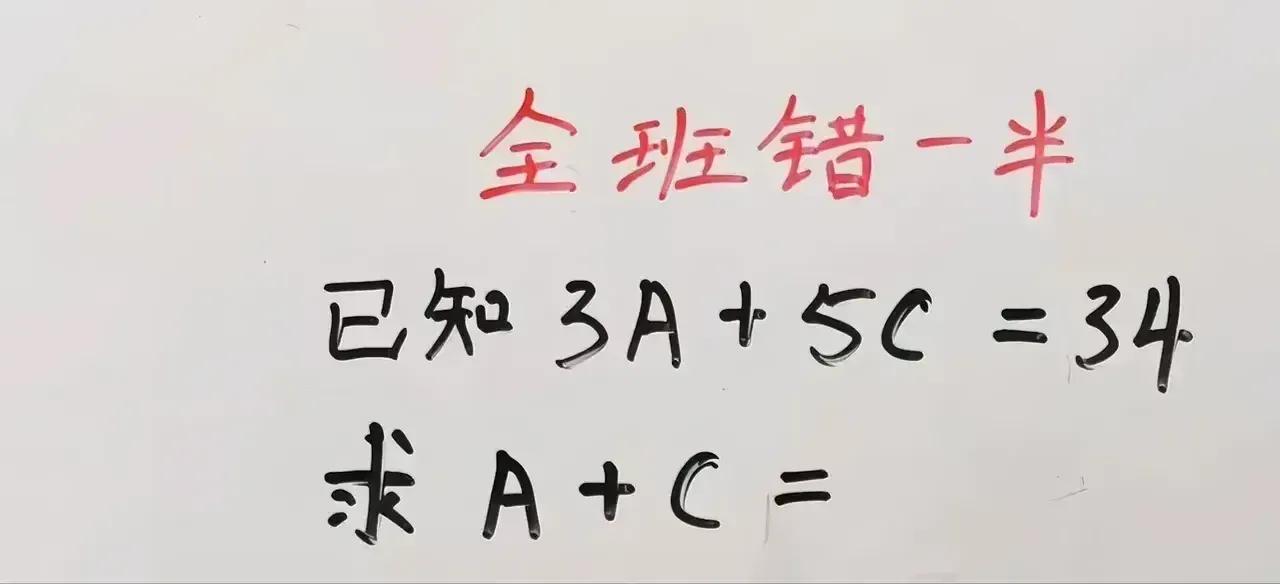 全班错一半
已知 3A + 5C = 34
求 A + C =